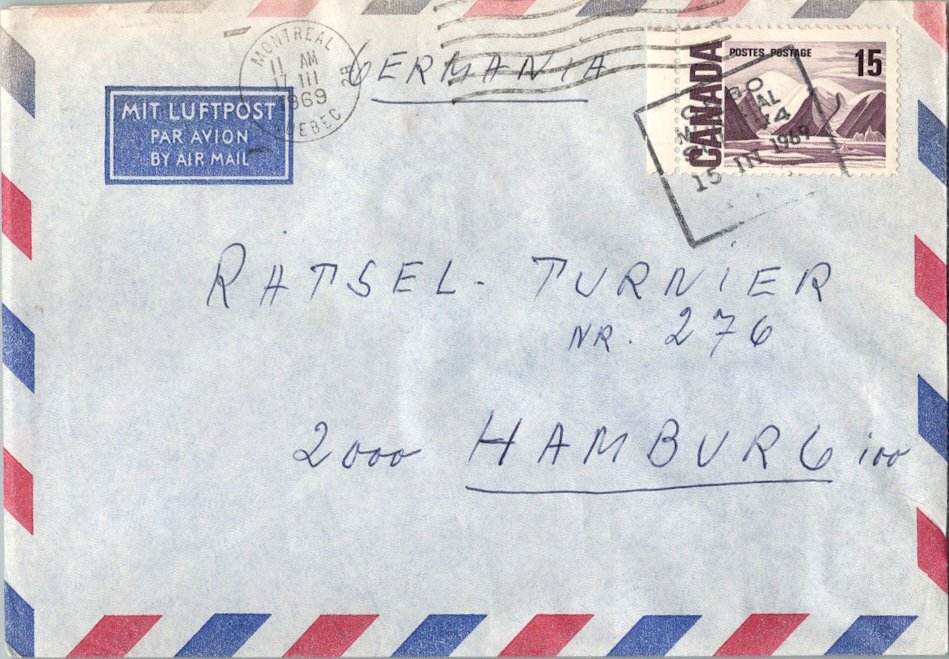 MONTREAL
11 AM
17 III
1969
QUEBEC
2A
GERMANIA
MIT LUFTPOST
PAR AVION
BY AIR MAIL
CANADA
POSTES POSTAGE
15
15 III 1969
RATSEL- TURNIER
NR. 276
2000 HAMBURG 100